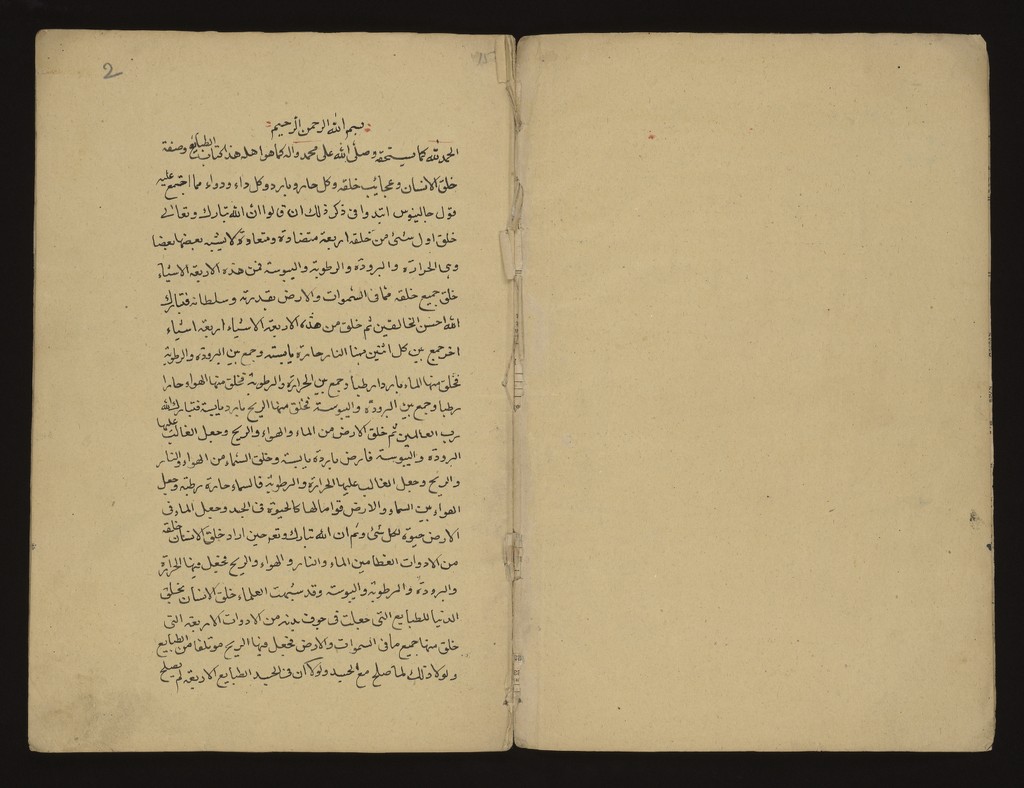 2
بسم الله الرحمن الرحيم
الحمد لله كما يستحقه وصلى الله على محمد واله كما هو اهله هذا كتاب الطبايع وصفة
خلق الانسان وعجائب خلقه وكل حار وبارد وكل داء ودواء مما اجتمع عليه
قول جالينوس ابتدوا فى ذكر ذلك ان قالوا ان الله تبارك وتعالى
خلق اول شئ من خلقه اربعة متضادة ومتعادة لا يشبه بعضها بعضا
وهى الحرارة والبرودة والرطوبة واليبوسة فمن هذه الاربعة الاشياء
خلق جميع خلقه مما فى السموات والارض بقدرته وسلطانه فتبارك
الله احسن الخالقين ثم خلق من هذه الاربعة الاشياء اربعة اشياء
اخر جمع بين كل اثنين منها النار حارة يابسة وجمع بين البرودة والرطوبة
فخلق منها الماء باردا رطبا وجمع بين الحرارة والرطوبة فخلق منها الهواء حارا
رطبا وجمع بين البرودة واليبوسة فخلق منها الريح بارد يابسة فتبارك الله
رب العالمين ثم خلق الارض من الماء والهواء والريح وجعل الغالب عليها
البرودة واليبوسة فارض باردة يابسة وخلق السماء من الهواء والنار
والريح وجعل الغالب عليها الحرارة والرطوبة فالسماء حارة رطبة وجعل
الهواء بين السماء والارض قواما لها كالحيوة فى الجسد وجعل الماء فى
الارض حيوة لكل شئ وثم ان الله تبارك وتعه حين اراد خلق الانسان خلقه
من الادوات العظام من الماء والنار والهواء والريح فجعل فيها الحرارة
والبرودة والرطوبة واليبوسة وقد شبهت العلماء خلق الانسان بخلق
الدنيا للطبايع التى جعلت فى جوف بدنه من الادوات الاربعة التى
خلق منها جميع ما فى السموات والارض فجعل فيها الريح موتلفا من الطبايع
ولولا ذلك لما صلح مع الجسد ولولا ان فى الجسد الطبايع الاربعة لم يصلح